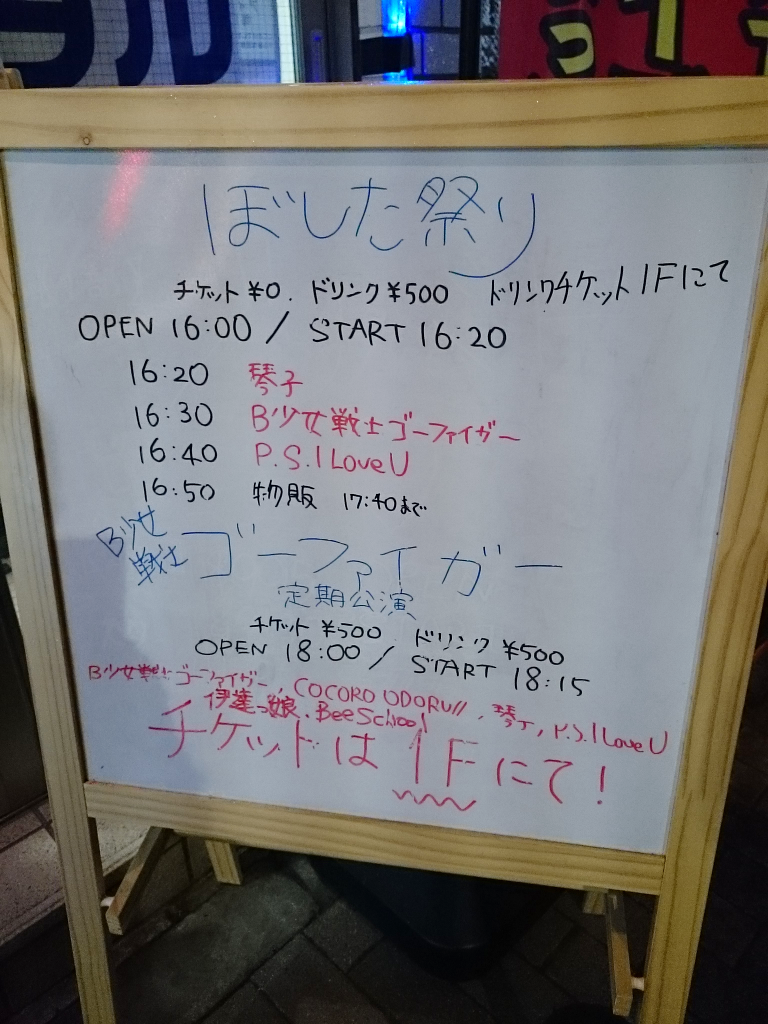 ぼした祭り
チケット ¥0. ドリンク ¥500 ドリンクチケット 1Fにて
OPEN 16:00 / START 16:20
16:20 琴子
16:30 B少女戦士ゴーファイガー
16:40 P.S.I Love U
16:50 物販 17:40まで
B少女戦士 ゴーファイガー
定期公演
チケット ¥500 ドリンク ¥500
OPEN 18:00 / START 18:15
B少女戦士ゴーファイガー, COCORO ODORU//, 琴子, P.S.I Love U
伊達っ娘. Bee School
チケットは 1Fにて!